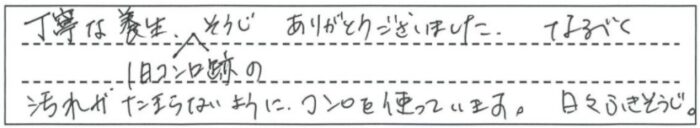 丁寧な養生、そうじ ありがとうございました。 なるべく
旧コンロ跡の
汚れが たまらないように、コンロを使っています。 日々ふきそうじ。